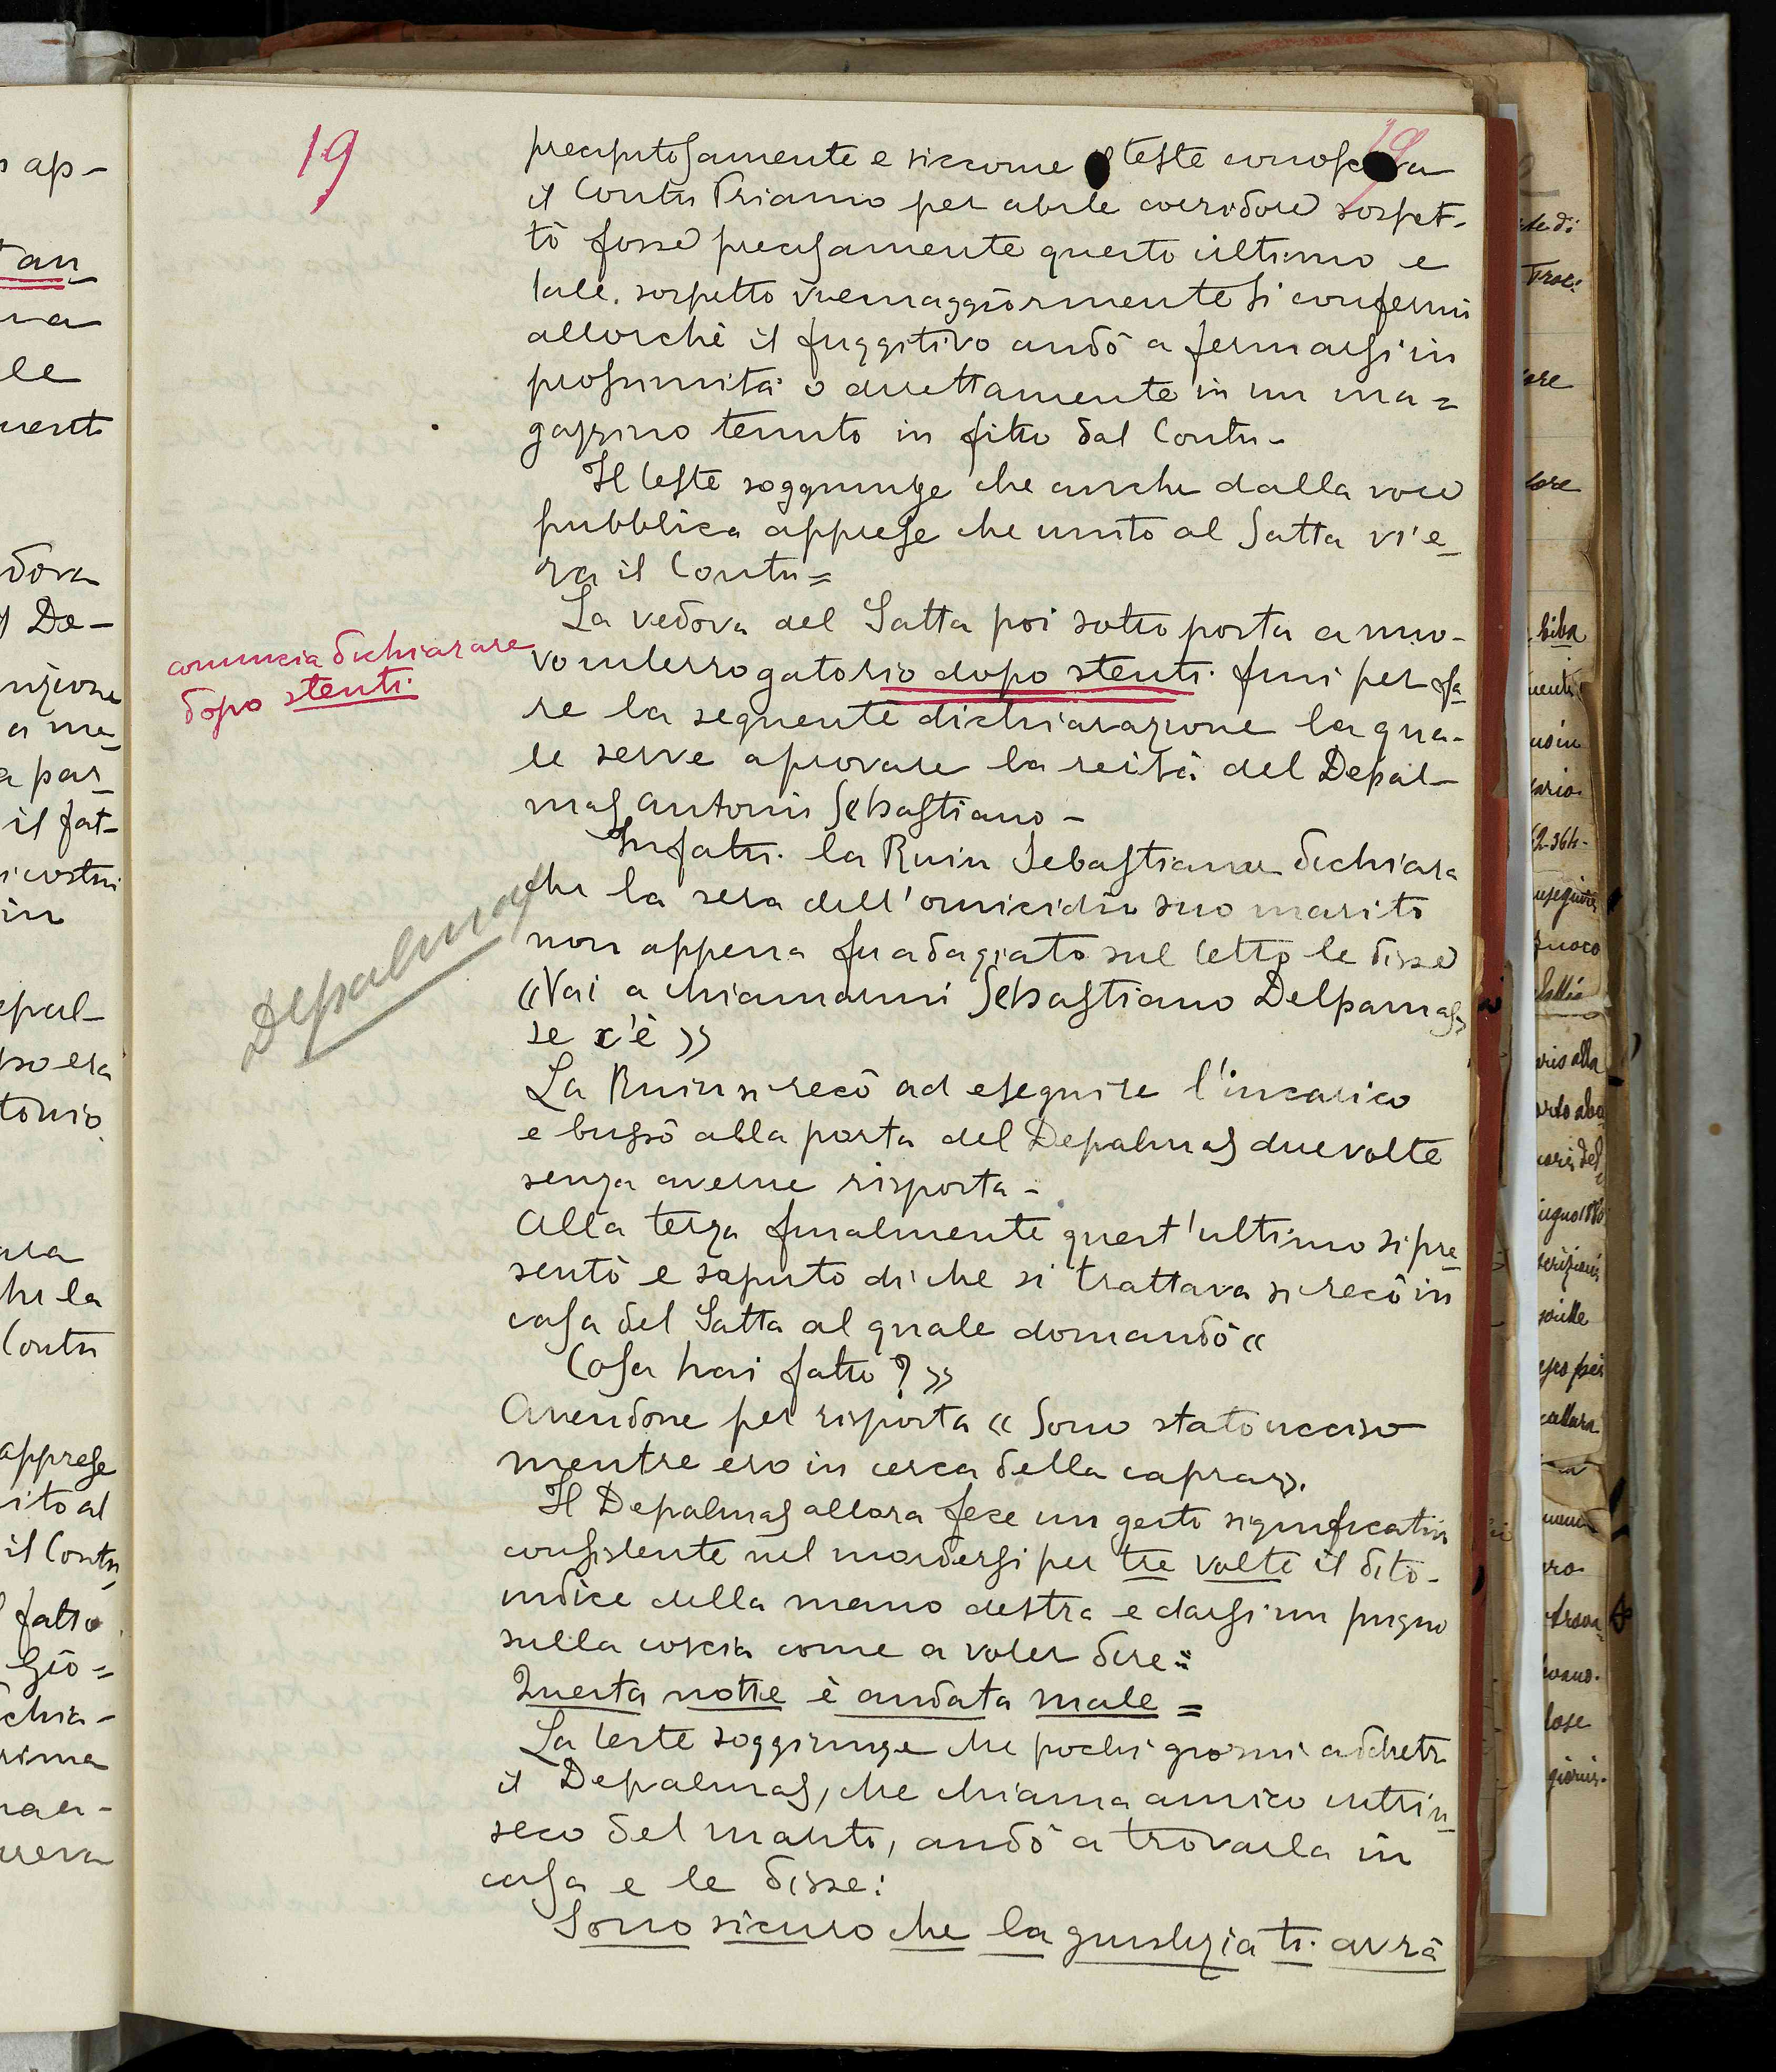 19
19
precipitosamente e siccome teste conosceva
il Contu Priamo per abile corridore sospet-
tò fosse precisamente questo ultimo e
tale sospetto viemaggiormente si confermò
allorchè il fuggitivo andò a fermarsi in
prossimità o direttamente in un ma=
gazzino tenuto in fitto dal Contu-
Il teste soggiunge che anche dalla voce
pubblica apprese che unito al Satta v'e-
ra il Contu=
La vedova del Satta poi sottoposta a nuo-
vo interrogatorio dopo stenti finì per fa-
re la seguente dichiarazione la qua-
le serve a provare la reità del Depal-
mas Antonio Sebastiano-
Infatti la Ruiu Sebastiana dichiara
che la sera dell'omicidio suo marito
non appena fu adagiato sul letto le disse
«Vai a chiamarmi Sebastiano Delpamas
se c'è»
La Ruiu si recò ad eseguire l'incarico
e bussò alla porta del Depalmas due volte
senza averne risposta-
Alla terza finalmente quest'ultimo si pre-
sentò e saputo di che si trattava si recò in
casa del Satta al quale domandò «
Cosa hai fatto?»
Avendone per risposta «Sono stato ucciso
mentre ero in cerca della capra».
Il Depalmas allora fece un gesto significativo
consistente nel mordersi per tre volte il dito-
indice della mano destra e darsi un pugno
sulla coscia come a voler dire=
Questa notte è andata male=
La teste soggiunge che pochi giorni addietro
il Depalmas, che chiama amico intrin-
seco del marito, andò a trovarla in
casa e le disse:
Sono sicuro che la giustizia ti avrà
comincia dichiarare
dopo stenti
Depalmas